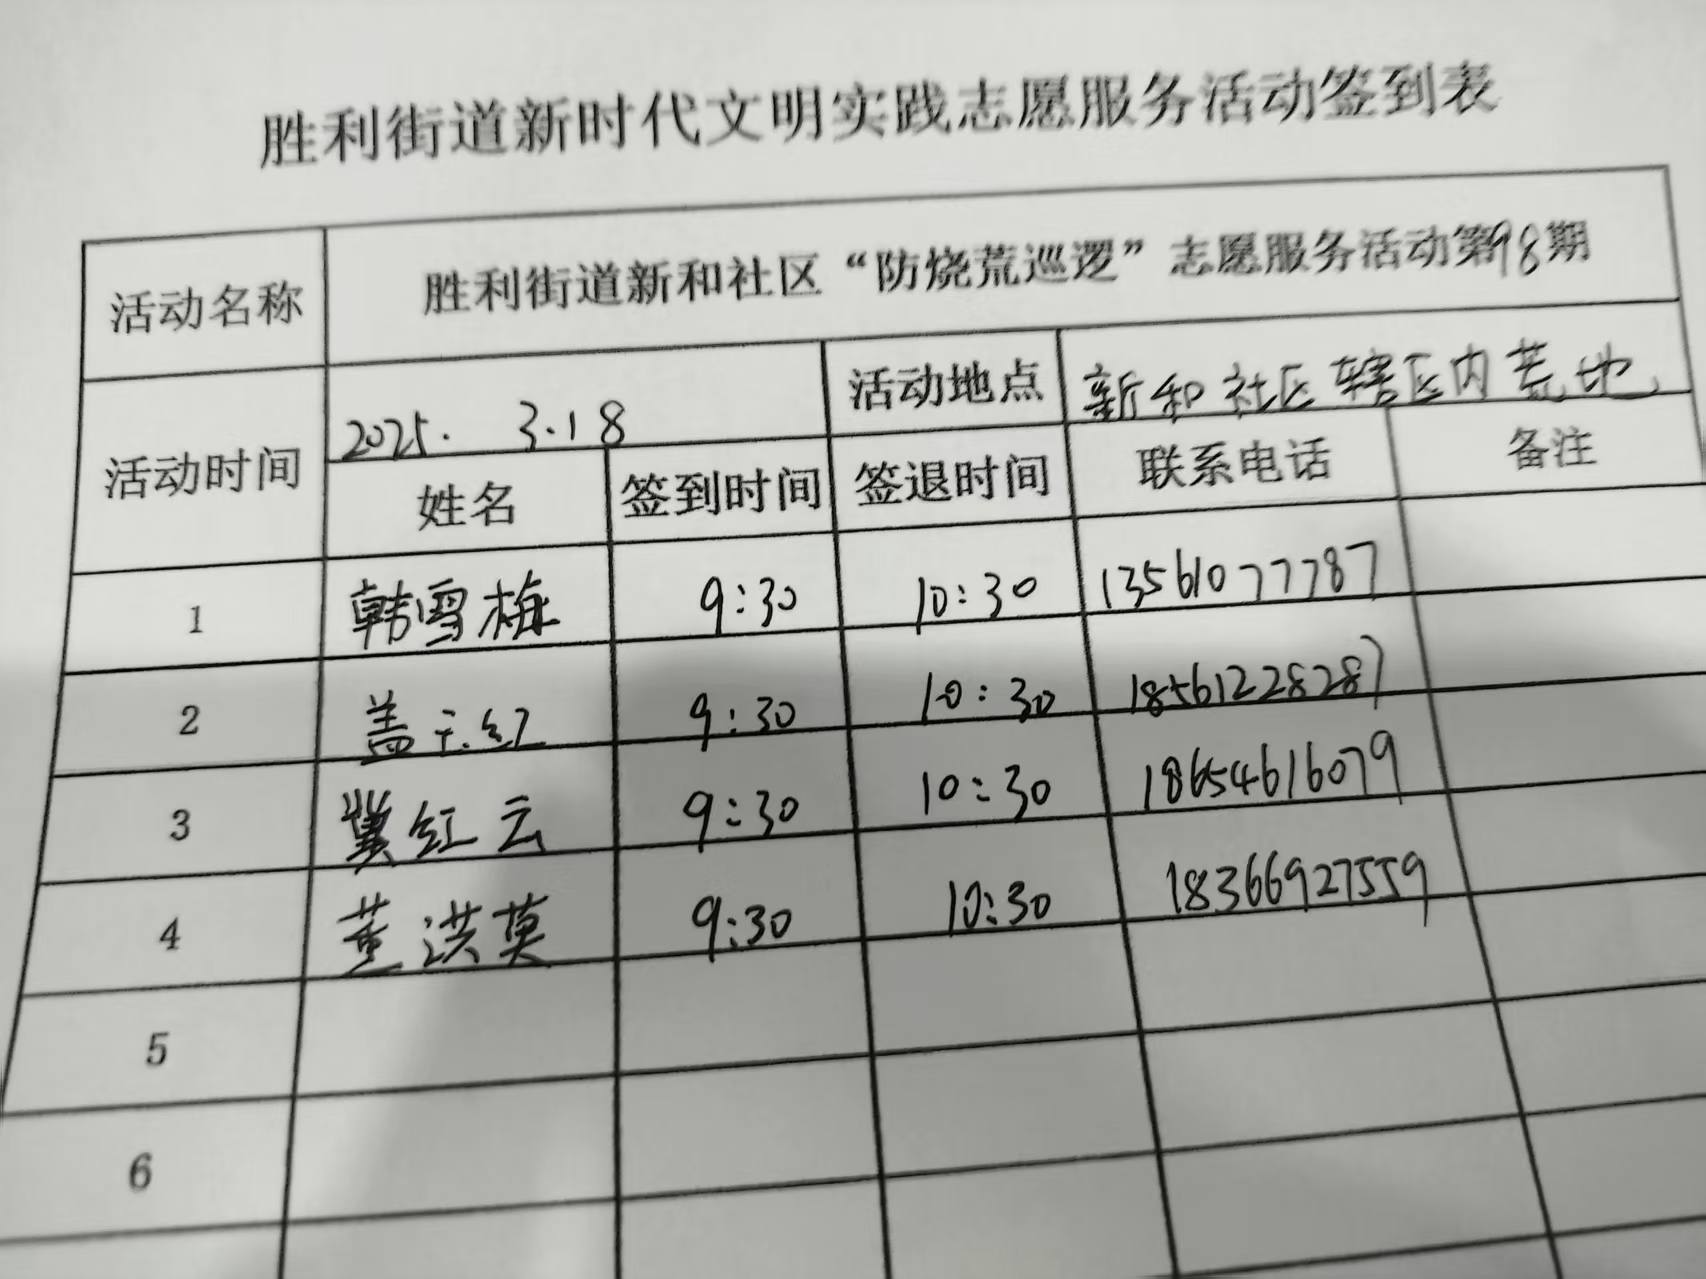 胜利街道新时代文明实践志愿服务活动签到表
活动名称 胜利街道新和社区“防烧荒巡逻”志愿服务活动第98期
活动时间 2025. 3.18 活动地点 新和社区辖区内荒地
姓名 签到时间 签退时间 联系电话 备注
1 韩雪梅 9:30 10:30 13561077787
2 盖 红 9:30 10:30 18561228287
3 冀红云 9:30 10:30 18654616079
4 董洪莫 9:30 10:30 18366927559
5
6